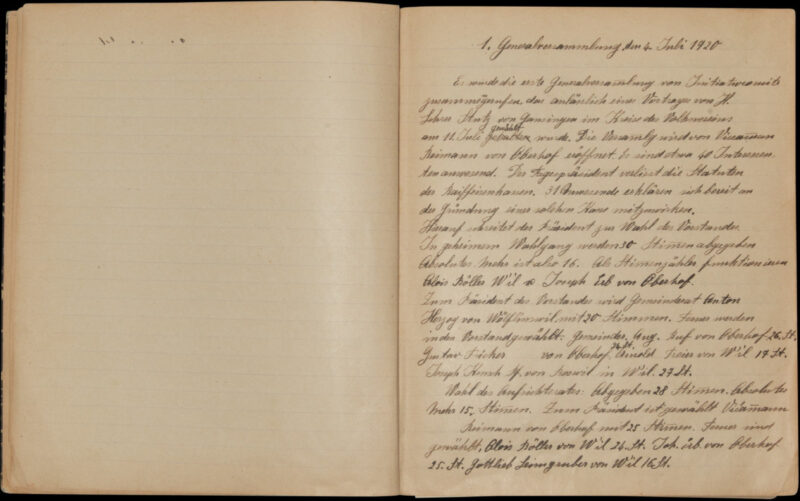 1. Generalversammlung den 4. Juli 1920
Es wurde die erste Generalversammlung von Initiativcomite
zusammengerufen, das anlässlich eines Vortrages von H.
Lehrer Stutz von Gansingen im Kreise des Volksvereins
am 11. Juli gewählt wurde. Die Versamlg wird von Viceammann
Reimann von Oberhof eröffnet. Es sind etwa 40 Interessen-
ten anwesend. Der Tagespräsident verliest die Statuten
der Raiffeisenkassen. 31 Anwesende erklären sich bereit an
der Gründung einer solchen Kasse mitzuwirken.
Hierauf schreitet der Präsident zur Wahl des Vorstandes.
In geheimem Wahlgang werden 30 Stimen abgegeben
Absolutes Mehr ist also 16. Als Stimenzähler funktionieren
Alois Böller Wil & Joseph Erb von Oberhof.
Zum Präsident des Vorstandes wird Gemeinderat Anton
Herzog von Wölflinswil mit 20 Stimmen. Ferner werden
in den Vorstand gewählt: Gemeinder. Aug. Ruf von Oberhof 26. St.
Gustav Fricker von Oberhof 24 St. Arnold Freier von Wil 17 St.
Joseph von in Wil. 27 St.
Wahl des Aufsichtsrates: Abgegeben 28 Stimen. Absolutes
Mehr 15. Stimen. Zum Präsident ist gewählt Viceammann
Reimann von Oberhof mit 25 Stimen. Ferner sind
gewählt, Alois Böller von Wil 26. St. Joh. Erb von Oberhof
25. St. Gottlieb Leimgruber von Wil 16. St.